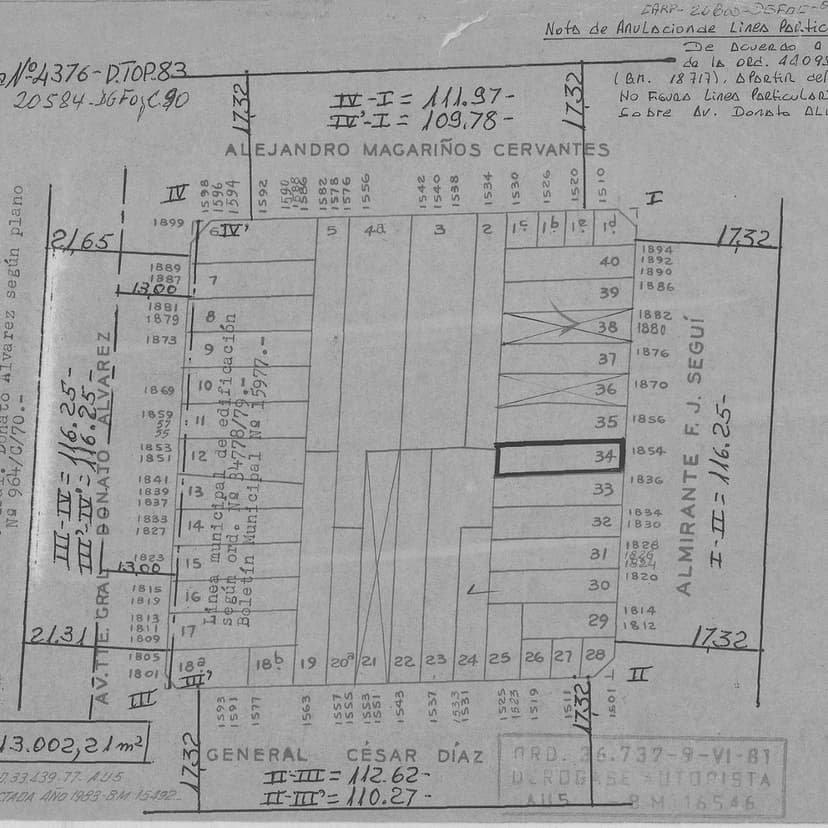 Nota de Anulacion de Linea Partic
De acuerdo a
de la ord. 44095
(B.M. 18717), a partir del
No Figura Linea Particular
Sobre Av. Donato Al
Nº4376-D.TOP.83
20584-DGFOyC.90
IV-I = 111.97-
IV'-I = 109.78-
17,32
17,32
ALEJANDRO MAGARIÑOS CERVANTES
IV
1598
1596
1594
1592
1590
1588
1586
1582
1578
1576
1556
1542
1540
1538
1534
1530
1526
1520
1510
I
1899
6
IV'
5
4a
3
2
1c
1b
1a
1d
21,65
17,32
1889
1887
13,00
7
40
1894
1892
1890
39
1886
1881
1879
8
38
1882
1880
1873
9
37
1876
1869
10
36
1870
1859
57
55
11
35
1856
1853
1851
12
34
1854
1841
1839
1837
13
33
1836
1833
1827
14
32
1834
1830
1823
13,00
15
31
1828
1826
1824
1815
1819
16
30
1820
1813
1811
1809
17
29
1814
1812
21.31
17,32
1805
1801
18a
18b
19
20a
21
22
23
24
25
26
27
28
III
III'
II
Donato Alvarez según plano
Nº 964/C/70.-
III-IV = 116.25-
III'-IV' = 116.25-
AV. TTE. GRAL. DONATO ALVAREZ
Línea municipal de edificación
según ord. Nº 34778/79.-
Boletín Municipal Nº 15977.-
ALMIRANTE F. J. SEGUÍ
I-II = 116.25-
1593
1591
1577
1563
1557
1555
1553
1551
1543
1537
1533
1531
1525
1523
1519
1511
1501
17,32
17,32
13.002,21 m²
GENERAL CÉSAR DÍAZ
II-III = 112.62-
II-III' = 110.27-
33.439-77. AU5
CTADA AÑO 1983-B.M 15492-
ORD. 36.737-9-VI-81
DEROGASE AUTOPISTA
AU5 - B.M. 16546